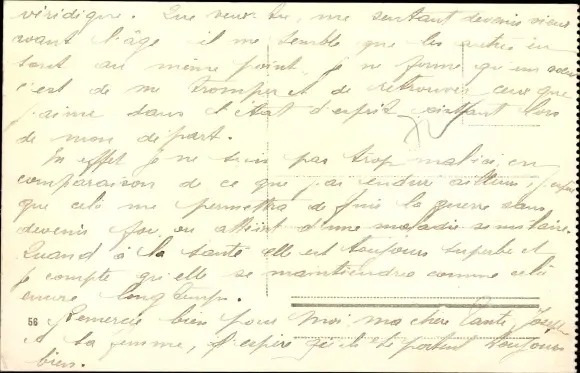 véridique. Que veux-tu, me sentant devenir vieux
avant l'âge il me semble que les autres en
sont au même point, je ne forme qu'un vœu
c'est de me tromper et de retrouver ceux que
j'aime dans l'état d'esprit existant lors
de mon départ.
En effet je ne suis pas trop mal ici, en
comparaison de ce que j'ai enduré ailleurs, j'espère
que cela me permettra de finir la guerre sans
devenir fou ou atteint d'une maladie similaire.
Quand à la santé elle est toujours superbe et
je compte qu'elle se maintiendra comme cela
encore longtemps.
56 Remercie bien pour moi ma chère Tante, Joseph
et sa femme, j'espère qu'ils se portent toujours
bien.